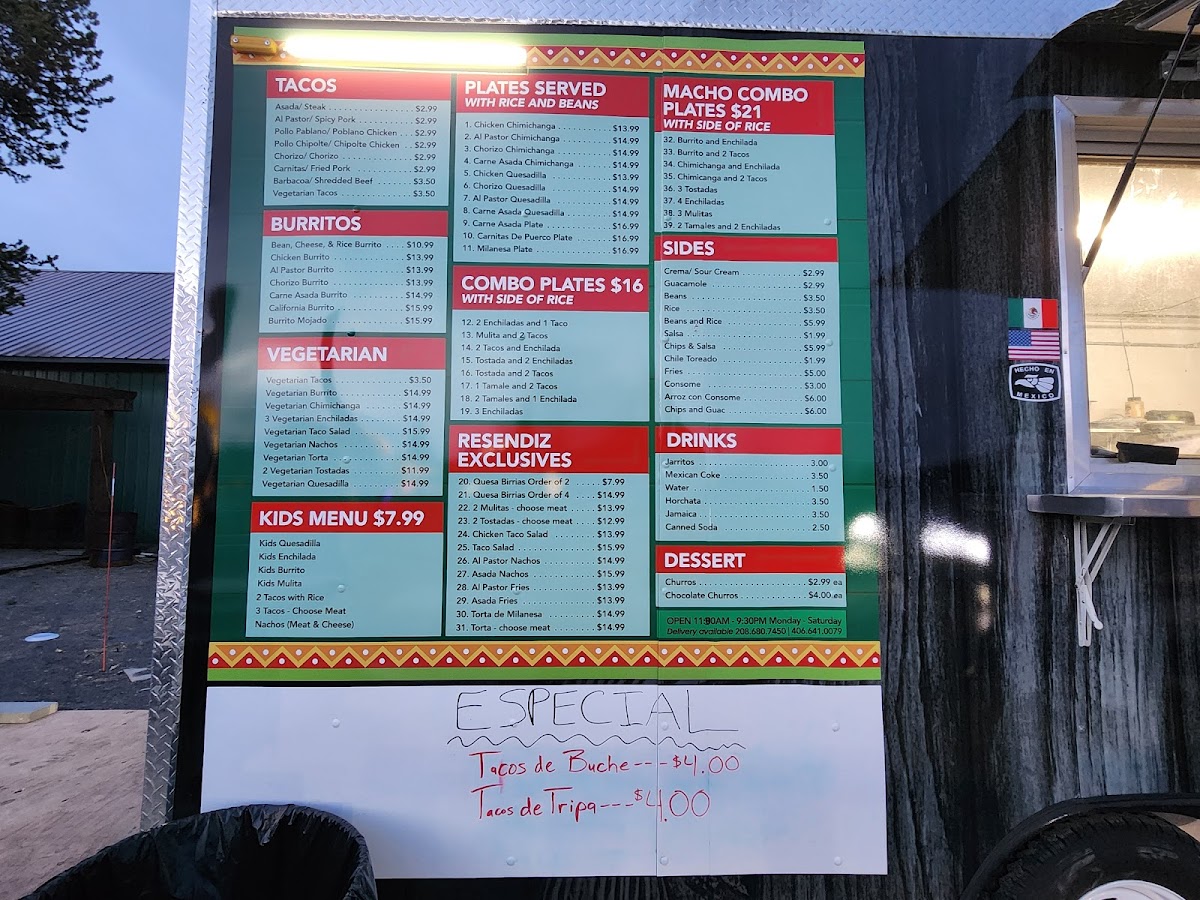 TACOS
Asada/ Steak $2.99
Al Pastor/ Spicy Pork $2.99
Pollo Pablano/ Poblano Chicken $2.99
Pollo Chipolte/ Chipolte Chicken $2.99
Chorizo/ Chorizo $2.99
Carnitas/ Fried Pork $2.99
Barbacoa/ Shredded Beef $3.50
Vegetarian Tacos $3.50
BURRITOS
Bean, Cheese, & Rice Burrito $10.99
Chicken Burrito $13.99
Al Pastor Burrito $13.99
Chorizo Burrito $13.99
Carne Asada Burrito $14.99
California Burrito $15.99
Burrito Mojado $15.99
VEGETARIAN
Vegetarian Tacos $3.50
Vegetarian Burrito $14.99
Vegetarian Chimichanga $14.99
3 Vegetarian Enchiladas $14.99
Vegetarian Taco Salad $15.99
Vegetarian Nachos $14.99
Vegetarian Torta $14.99
2 Vegetarian Tostadas $11.99
Vegetarian Quesadilla $14.99
KIDS MENU $7.99
Kids Quesadilla
Kids Enchilada
Kids Burrito
Kids Mulita
2 Tacos with Rice
3 Tacos - Choose Meat
Nachos (Meat & Cheese)
PLATES SERVED
WITH RICE AND BEANS
1. Chicken Chimichanga $13.99
2. Al Pastor Chimichanga $14.99
3. Chorizo Chimichanga $14.99
4. Carne Asada Chimichanga $14.99
5. Chicken Quesadilla $13.99
6. Chorizo Quesadilla $14.99
7. Al Pastor Quesadilla $14.99
8. Carne Asada Quesadilla $14.99
9. Carne Asada Plate $16.99
10. Carnitas De Puerco Plate $16.99
11. Milanesa Plate $16.99
COMBO PLATES $16
WITH SIDE OF RICE
12. 2 Enchiladas and 1 Taco
13. Mulita and 2 Tacos
14. 2 Tacos and Enchilada
15. Tostada and 2 Enchiladas
16. Tostada and 2 Tacos
17. 1 Tamale and 2 Tacos
18. 2 Tamales and 1 Enchilada
19. 3 Enchiladas
RESENDIZ
EXCLUSIVES
20. Quesa Birrias Order of 2 $7.99
21. Quesa Birrias Order of 4 $14.99
22. 2 Mulitas - choose meat $13.99
23. 2 Tostadas - choose meat $12.99
24. Chicken Taco Salad $13.99
25. Taco Salad $15.99
26. Al Pastor Nachos $14.99
27. Asada Nachos $15.99
28. Al Pastor Fries $13.99
29. Asada Fries $13.99
30. Torta de Milanesa $14.99
31. Torta - choose meat $14.99
MACHO COMBO
PLATES $21
WITH SIDE OF RICE
32. Burrito and Enchilada
33. Burrito and 2 Tacos
34. Chimichanga and Enchilada
35. Chimicanga and 2 Tacos
36. 3 Tostadas
37. 4 Enchiladas
38. 3 Mulitas
39. 2 Tamales and 2 Enchiladas
SIDES
Crema/ Sour Cream $2.99
Guacamole $2.99
Beans $3.50
Rice $3.50
Beans and Rice $5.99
Salsa $1.99
Chips & Salsa $5.99
Chile Toreado $1.99
Fries $5.00
Consome $3.00
Arroz con Consome $6.00
Chips and Guac $6.00
DRINKS
Jarritos 3.00
Mexican Coke 3.50
Water 1.50
Horchata 3.50
Jamaica 3.50
Canned Soda 2.50
DESSERT
Churros $2.99 ea
Chocolate Churros $4.00 ea
OPEN AM - 9:30PM Monday - Saturday
Delivery available 208.680.7450 | 406.641.0079
ESPECIAL
Tacos de Buche---$4.00
Tacos de Tripa---$4.00
HECHO EN
MEXICO